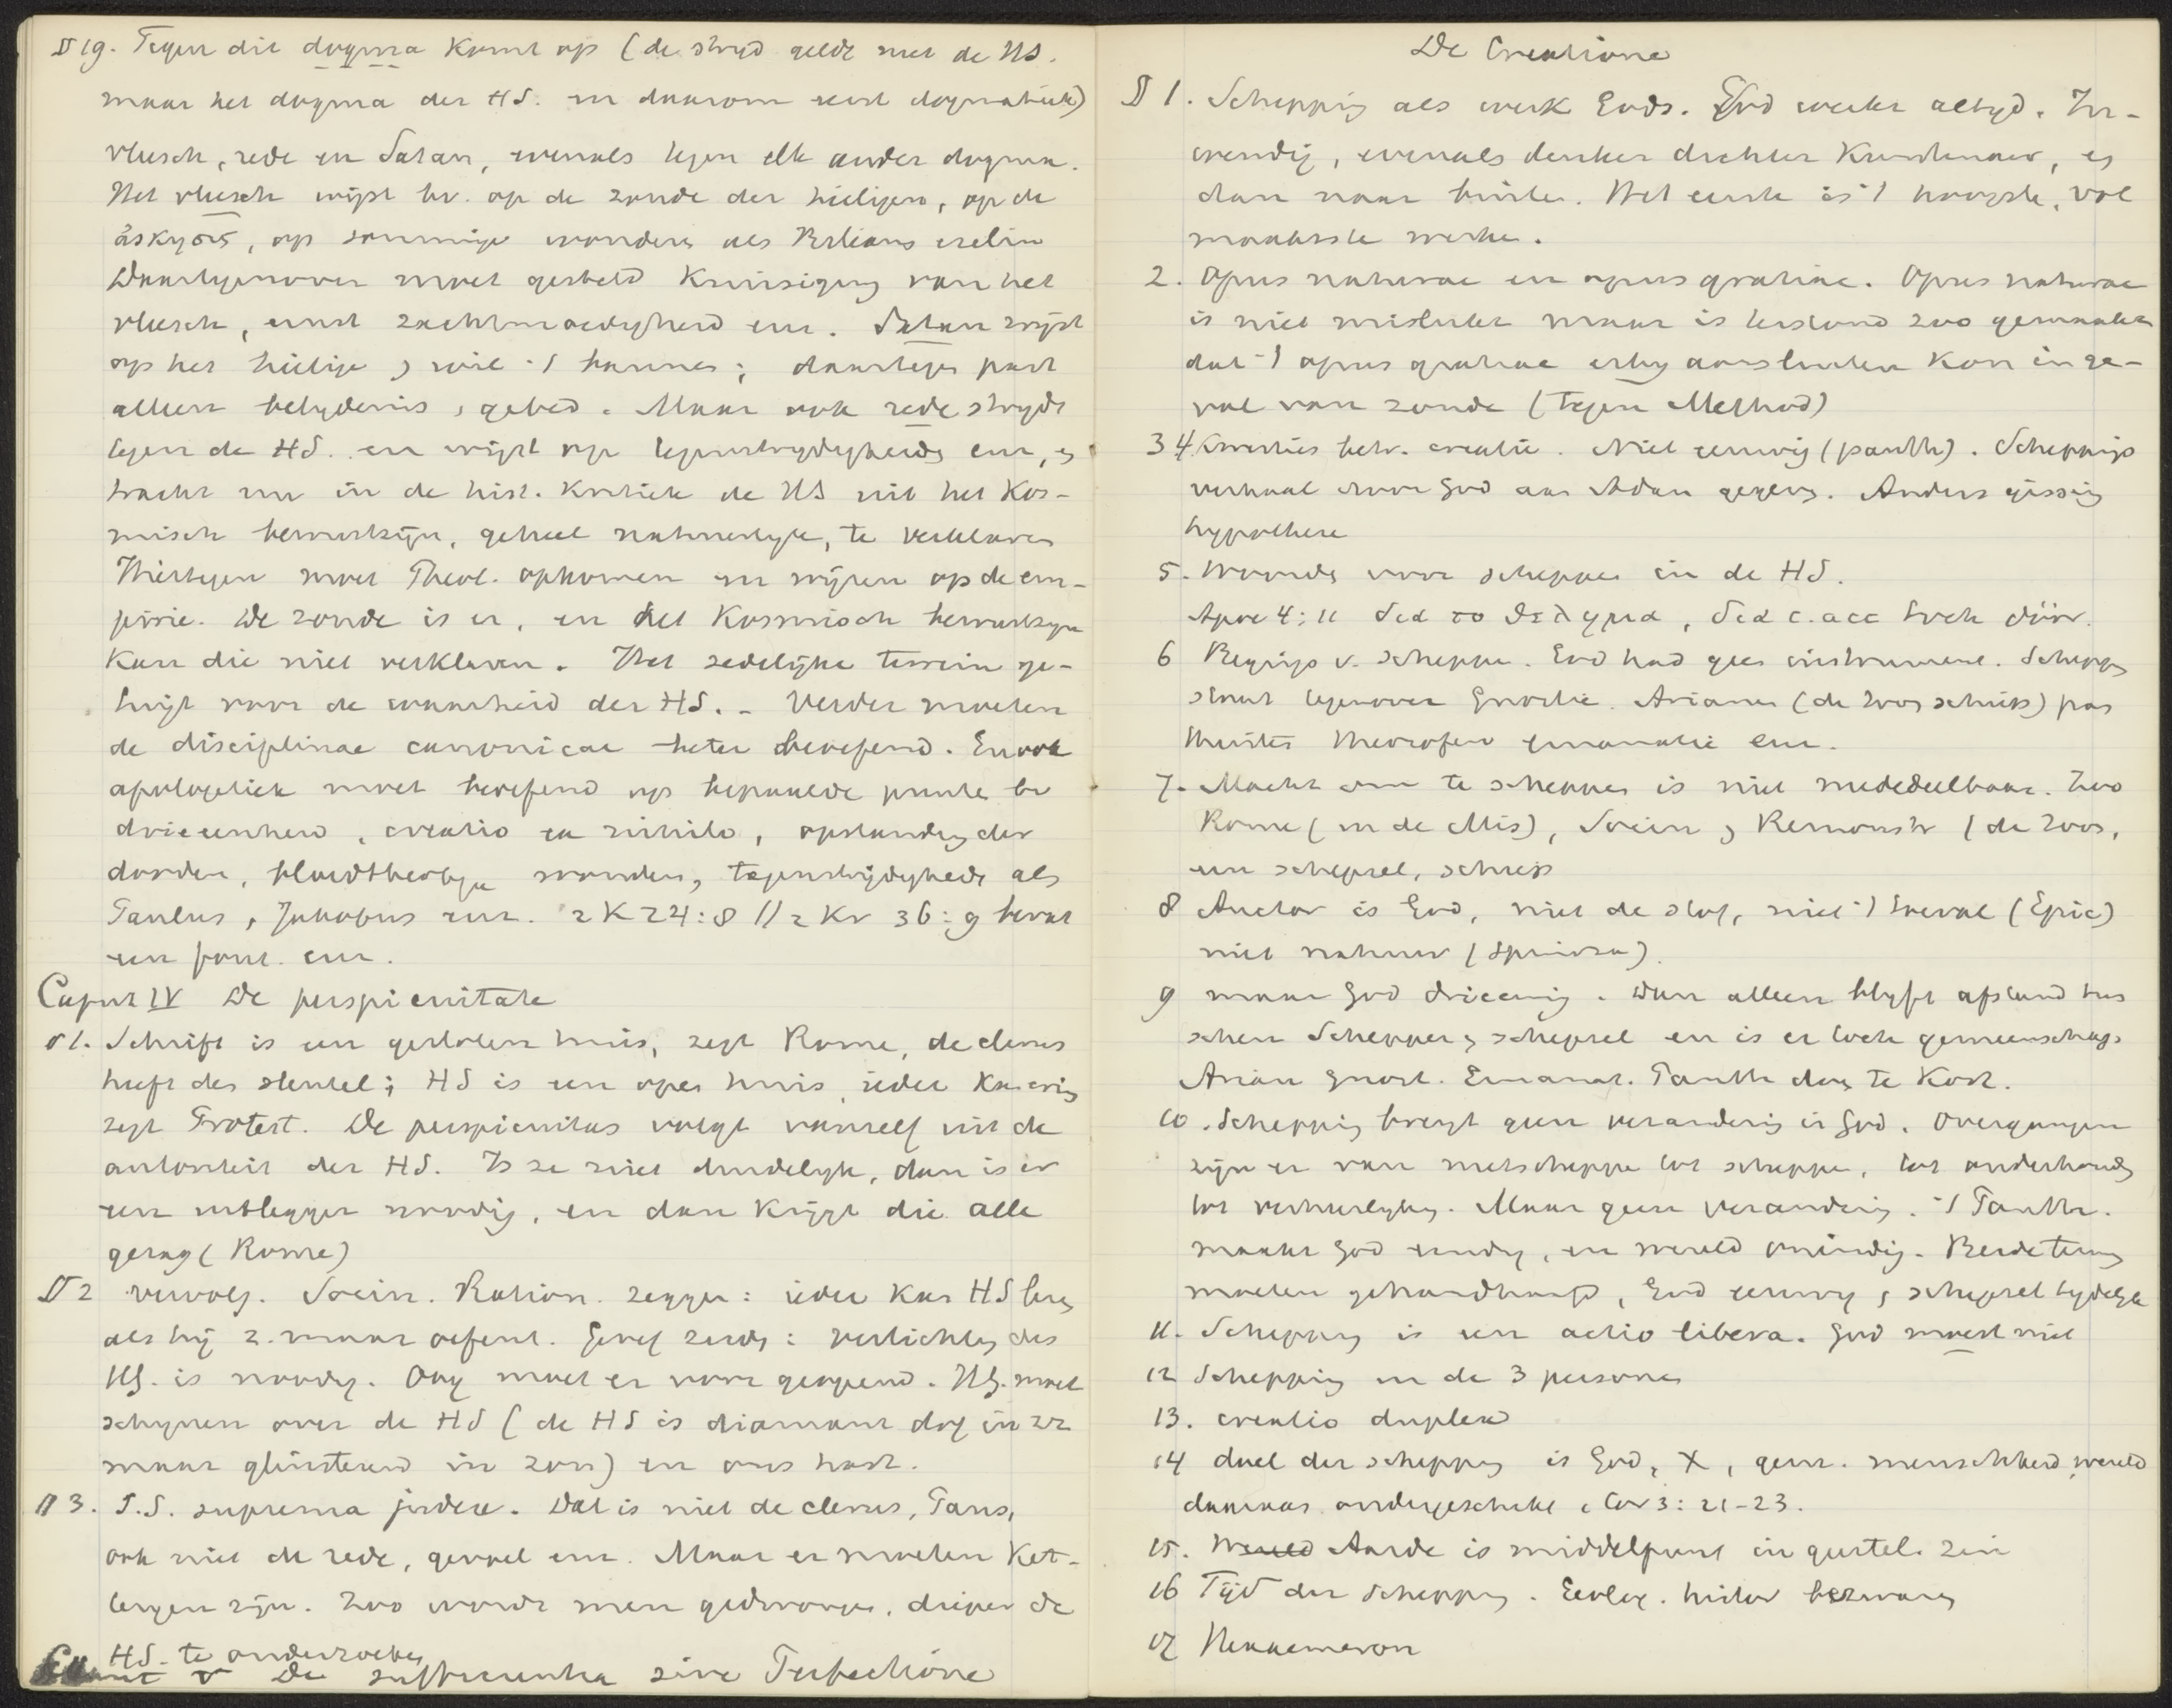 § 19. Tegen dit dogma komt op (de strijd geldt niet de HS.
maar het dogma der HS. en daarom eerst dogmatiek)
vleesch, rede en Satan, evenals tegen elk ander dogma.
Het vleesch wijst bv. op de zonde der heiligen, op de
op sommige wonderen als Bileams ezelin
Daartegenover moet gesteld Kruisiging van het
vleesch, ernst zachtmoedigheid enz. Satan wijst
op het heilige, wil 't ; daartegen past
alleen belydenis, gebed. Maar ook rede strydt
tegen de HS. en wijst op tegenstrydigheden enz, en
tracht nu in de hist. kritiek de HS uit het Kos-
misch bewustzijn, geheel natuurlyk, te verklaren
Hiertegen moet Theol. opkomen en wijzen op de em-
pirie. De zonde is er, en het Kosmisch bewustzyn
kan die niet verklaren. Het zedelijke terrein ge-
tuigt voor de waarheid der HS. - Verder moeten
de disciplinae canonicae beter beoefend. En ook
apologetiek moet beoefend op bepaalde punten bv
drieeenheid, creatio ex nihilo, opstanding der
dooden, bloedtheologie wonderen, tegenstrijdigheden als
Paulus, Jakobus enz. 2 K 24:8 // 2 Kr 36:9 bevat
een fout. enz.
Caput IV De perspicuitate
§ 1. Schrift is een gesloten huis, zegt Rome, de clerus
heeft den sleutel; HS is een open huis, ieder kan erin
zegt Protest. De perspicuitas volgt vanself uit de
autoriteit der HS. Is ze niet duidelyk, dan is er
een uitlegger noodig, en dan krijgt die alle
gezag (Rome)
§ 2 vervolg. Socin. Ration. zeggen: ieder kan HS lezen
als hij z. maar oefent. Geref zeiden: verlichting des
HG. is noodig. Oog moet er voor geopend. HG. moet
schynen over de HS (de HS is diamant dof in zz
maar glinsterend in zon) en ons hart.
§ 3. S.S. suprema judex. Dat is niet de clerus, Paus,
ook niet de rede, gevoel enz. Maar er moeten Ket-
teryen zijn. Zoo wordt men gedwongen, dieper de
HS. te onderzoeken
Caput V De sufficientia sive Perfectione
De Creatione
§ 1. Schepping als werk Gods. God werkt altyd. In-
wendig, evenals denker dichter Kunstenaar, en
dan naar buiten. Het eerste is 't hoogste, vol
maaktste werken.
2. Opus naturae en opus gratiae. Opus naturae
is niet mislukt maar is terstond zoo gemaakt
dat 't opus gratiae erby aansluiten kon inge-
val van zonde (tegen Method)
3 4. Kwesties betr. creatie. Niet eeuwig (panth). Scheppings
verhaal door God aan Adam gegeven. Anders gissing
hypothese
5. Woorden voor scheppen in de HS.
Apoc 4:11 δια το θελημα, δια c. acc toch door.
6 Begrip v. scheppen. God had geen instrument. Schepping
staat tegenover Gnostie. Arianen (de Zoon schiep) pan
theisten theosofen emanatie enz.
7. Macht om te scheppen is niet mededeelbaar. Zoo
Rome (in de Mis), Socin, Remonstr (de Zoon,
een schepsel, schiep
8 Auctor is God, niet de stof, niet 't toeval (Epic)
niet natuur (Spinoza).
9 maar God drieeenig. Dan alleen blyft afstand tus
schen Schepper en schepsel en is er toch gemeenschap.
Arian gnost. Emanat. Panth doen te kort.
10. Schepping brengt geen verandering in God. Overgangen
zijn er van nietscheppen tot scheppen, tot onderhouden
tot verheerlyken. Maar geen verandering. 't Panth.
maakt God eindig, en wereld oneindig. Beide termen
moeten gehandhaafd, God eeuwig, schepsel tydelyk
11. Schepping is een actio libera. God moest niet
12 Schepping en de 3 personen
13. creatio duplex
14 doel der schepping is God, X, gem. menschheid, wereld
daaraan ondergeschikt 1 Cor 3: 21-23.
15. Aarde is middelpunt in geestel. zin
16 Tijd der schepping. Geolog. histor bezwaren
17 Hexaemeron